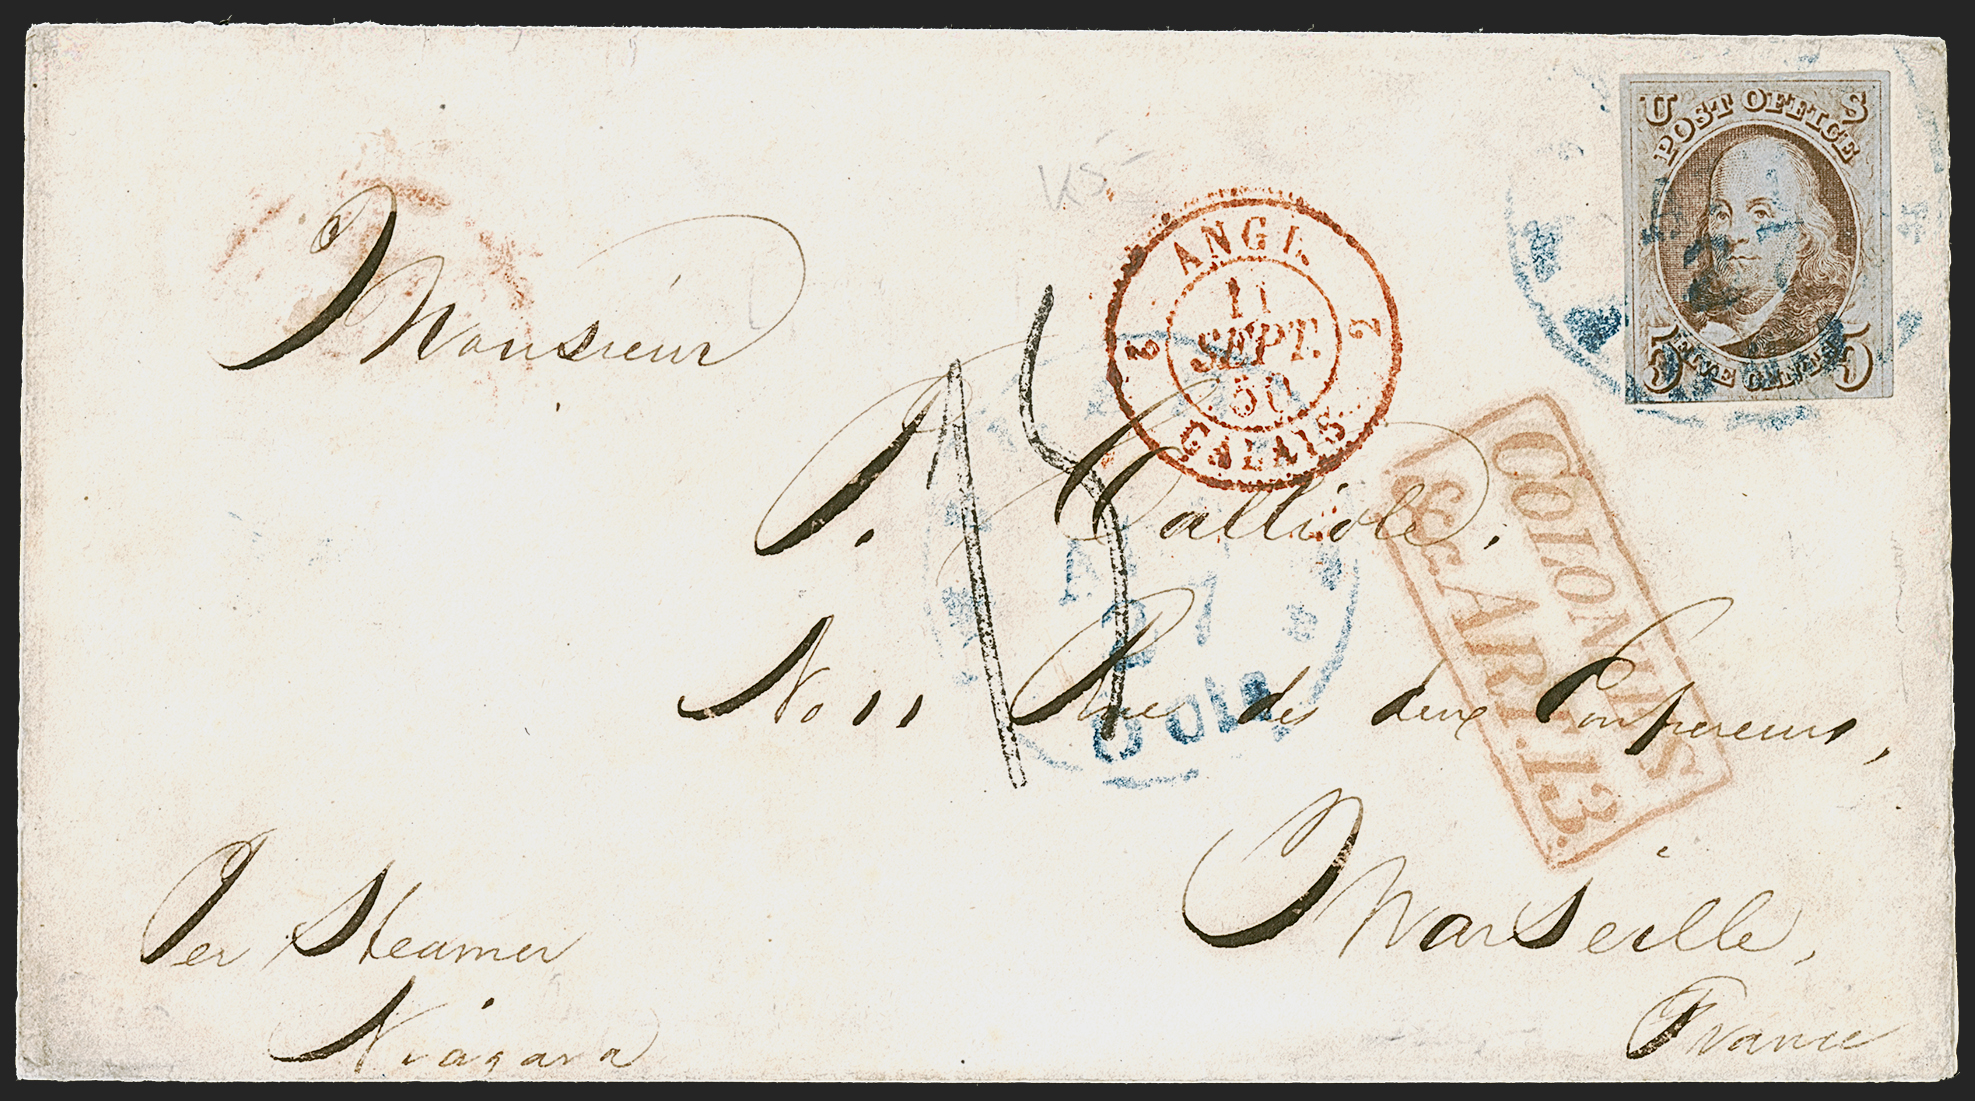 U S
POST OFFICE
5 FIVE CENTS 5
ANGL.
2 11 2
SEPT.
50
CALAIS
COLONIES
&c. ART. 13.
Monsieur
15
No 11 Rue des deux
Marseille,
France
Per Steamer
Niagara
27